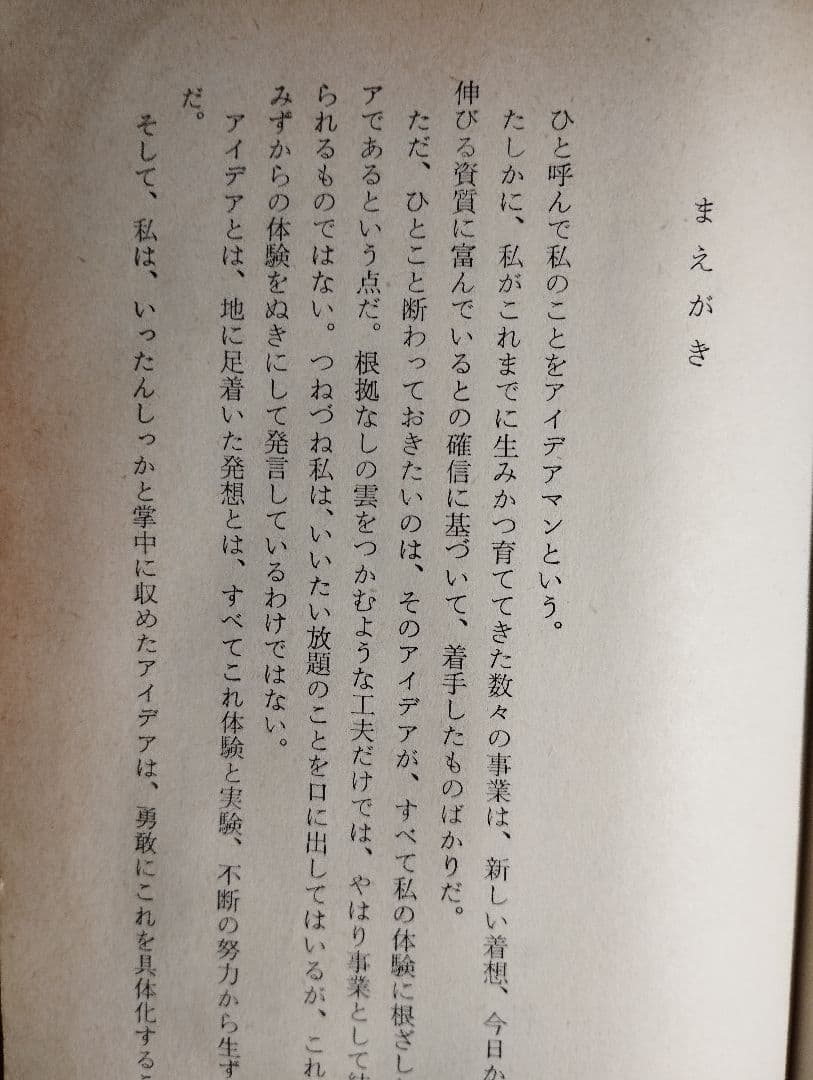 まえがき
ひと呼んで私のことをアイデアマンという。
たしかに、私がこれまでに生みかつ育ててきた数々の事業は、新しい着想、今日か
伸びる資質に富んでいるとの確信に基づいて、着手したものばかりだ。
ただ、ひとこと断わっておきたいのは、そのアイデアが、すべて私の体験に根ざし
アであるという点だ。根拠なしの雲をつかむような工夫だけでは、やはり事業として
られるものではない。つねづね私は、いいたい放題のことを口に出してはいるが、これ
みずからの体験をぬきにして発言しているわけではない。
アイデアとは、地に足着いた発想とは、すべてこれ体験と実験、不断の努力から生ず
だ。
そして、私は、いったんしっかと掌中に収めたアイデアは、勇敢にこれを具体化する